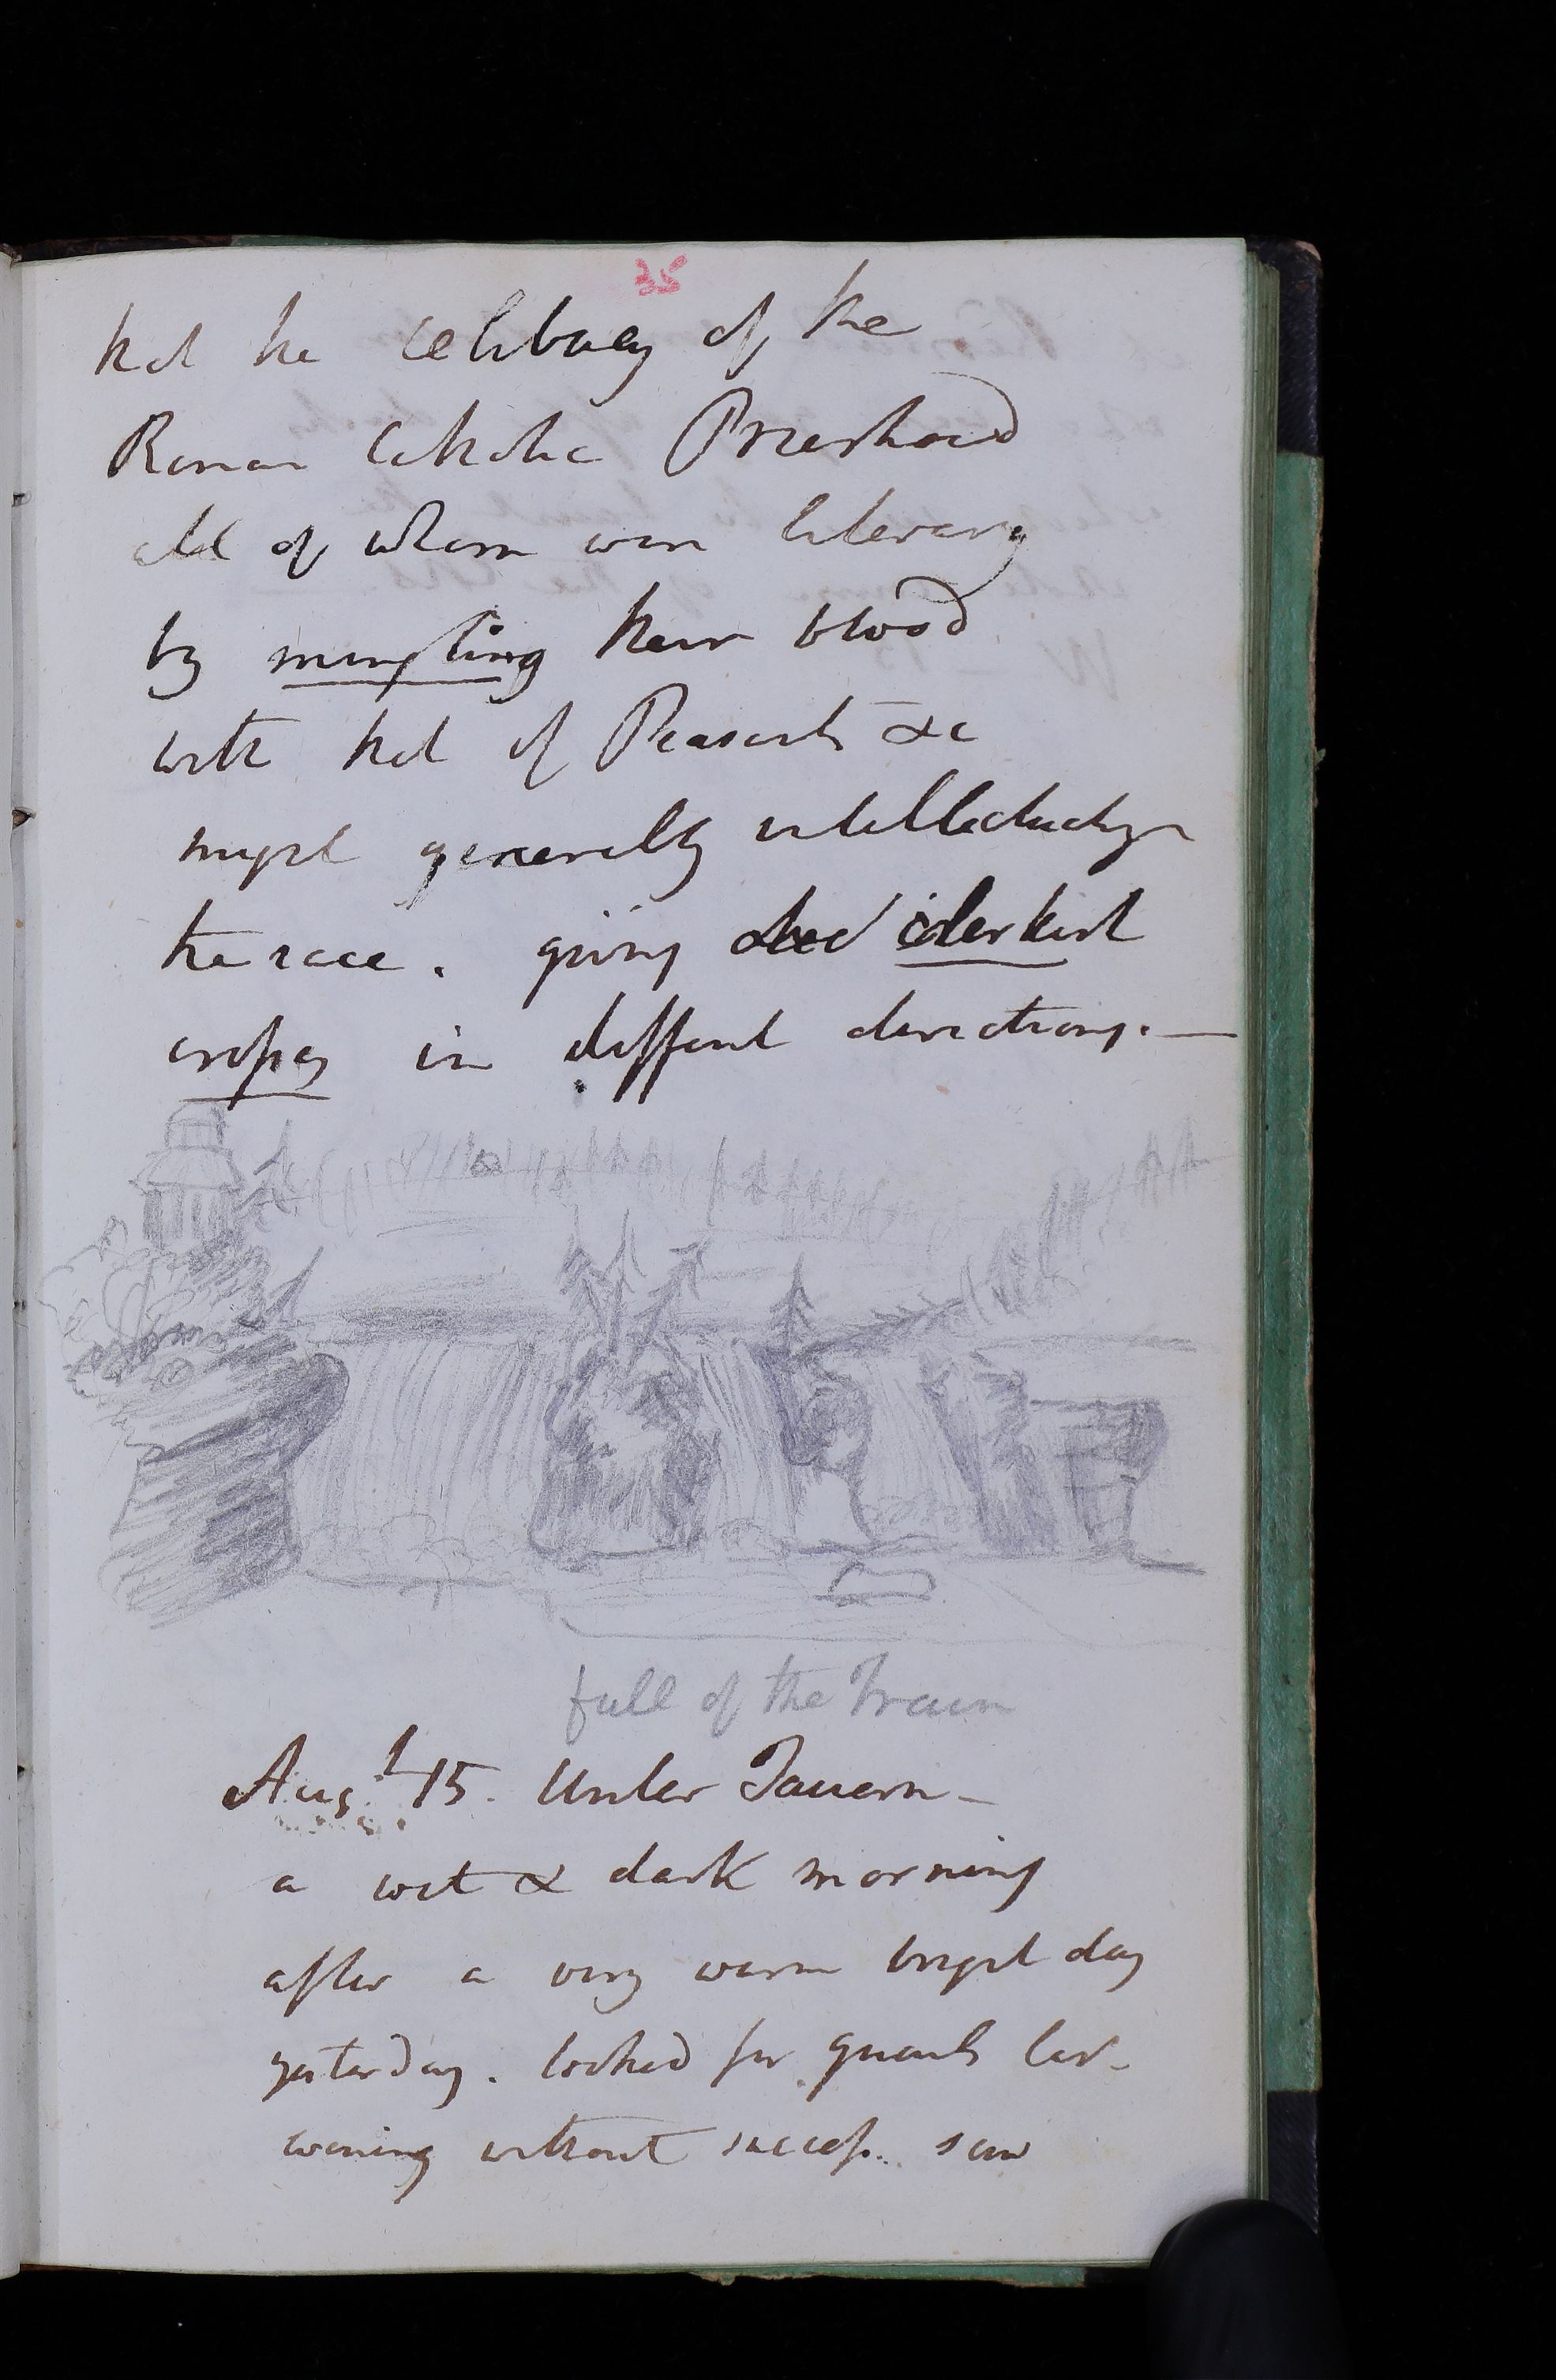 35
that the celibacy of the
Roman Catholic Priesthood
all of whom were literary
by mingling their blood
with that of Peasants &c
might generally intellectualize
the race. giving
crosses in different directions.—
fall of the Traun
Augt. 15. Unter Tauern —
a wet & dark morning
after a very warm bright day
yesterday. looked for quails last
evening without success. saw